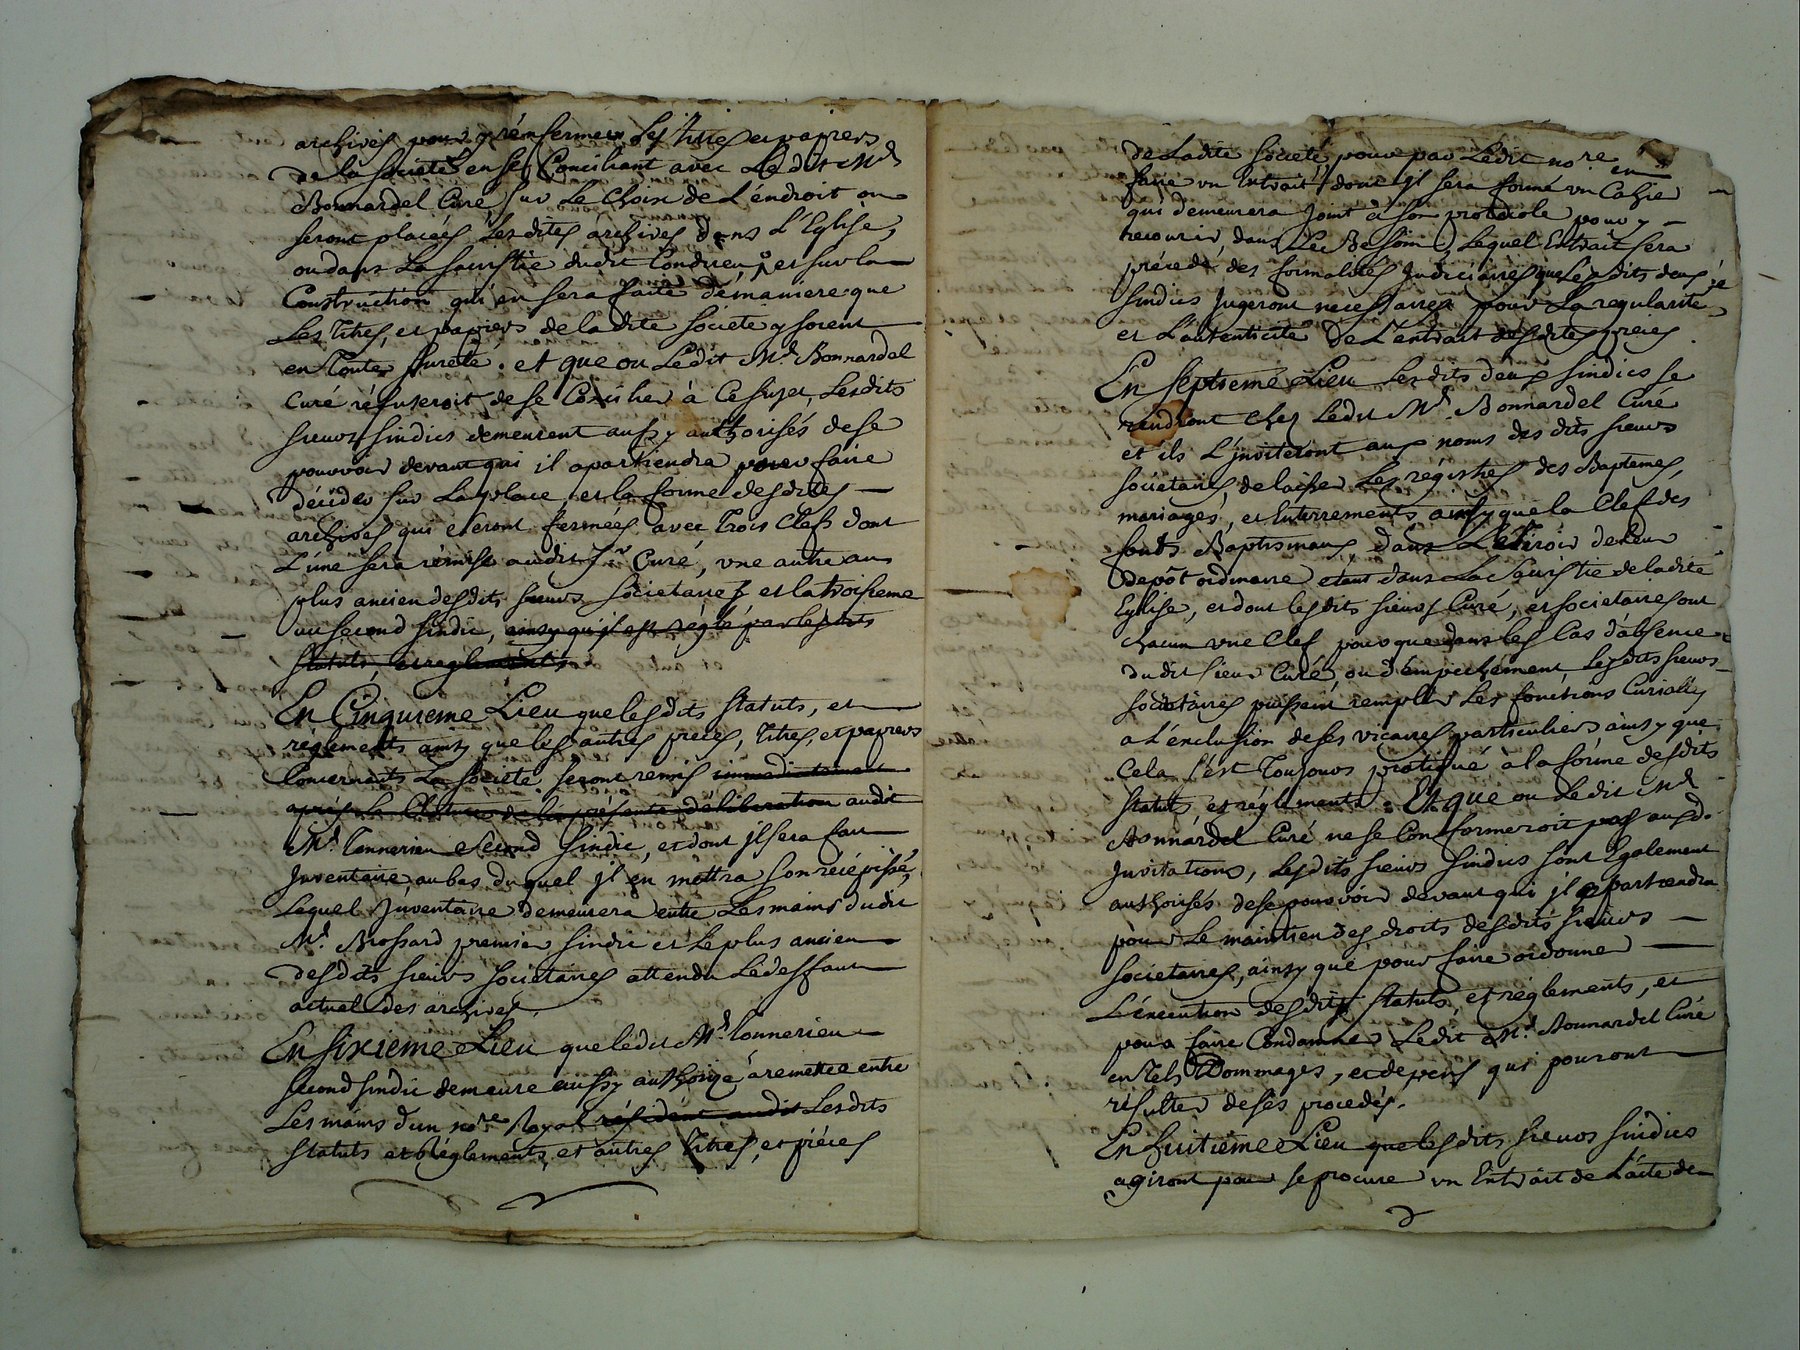 archives pour y rénfermer les titres et papiers
de la société en se Conciliant avec Le dit Mr
Bonnardel Curé sur Le Choix de L'éndroit ou
seront placéés Lesdites archives dans L'Eglise,
ou dans La sacristie dudit Condrieu, et sur la
Construction qui en sera faite démaniere que
Les titres, et papiers de ladite société y soient
en Toute sureté. et que ou Ledit Mr Bonnardel
Curé réfuseroit de se Concilier à Ce sujet, Lesdits
sieurs sindics demeurent aussy authorisés de se
pourvoir devant qui il apartiendra pour faire
décider sur La place et la forme desdites
archives qui seront fermées avec Trois Clefs dont
L'une sera rémise audit Sr Curé, une autre au
plus ancien desdits sieurs societaires et la troisieme
au second sindic, ainsy qu'il est réglé par lesdits
statuts, et reglements
En Cinquieme Lieu que lesdits statuts, et
réglements ainsy que les autres pieces, titres, et papiers
Concernants La société seront remis immediatement
après La Cloture de la présente déliberation audit
Mr Tonnerieu Second sindic, et dont il sera fait
Inventaire au bas duquel il en mettra son récépissé,
Lequel Inventaire demeurera entre Les mains dudit
Mr Brossard premier sindic et Le plus ancien
desdits sieurs societaires attendu Le deffaut
actuel des archives.
En sixieme Lieu que ledit Mr Tonnerieu
second sindic demeure aussy authorisé à remettre entre
Les mains d'un nore Royal résident audit Lesdits
statuts et Réglements, et autres titres, et piéces
de Ladite société, pour par Ledit nore en
faire un Extrait dont il sera formé un Cahier
qui demeurera joint à son protocole pour y
recourir, dans Le Besoin, Lequel Extrait sera
précédé des formalités judiciaires que Lesdits deux
sindics jugeront necessaires pour La regularité
et L'autenticité de L'extrait desdites pieces
En septieme Lieu Lesdits deux sindics se
rendront chez Ledit Mr Bonnardel Curé
et ils L'inviteront aux noms desdits sieurs
sociétaires, de laisser Les régistres des Baptemes,
mariages, et Enterrements, ainsy que la Clef des
fonds Baptismaux dans Le tiroir de leur
depôt ordinaire etant dans La sacristie de ladite
Eglise, et dont lesdits sieurs Curé, et societaires ont
chacun une Clef pour que dans les Cas d'absence
dudit sieur Curé, ou d'émpechement, Lesdits sieurs
sociétaires puissent remplir Les fonctions Curialles
a L'exclusion de ses vicaires particuliers ainsy que
Cela s'est Toujours pratiqué à la forme desdits
statuts, et réglements. Et que ou Ledit Mr
Bonnardel Curé ne se Conformeroit pas aud.
Invitations, Lesdits sieurs sindics sont Egalement
authorisés de se pourvoir devant qui il apartiendra
pour Le maintien des droits desdits sieurs
societaires, ainsy que pour faire ordonner
L'éxécution desdits statuts, et reglements, et
pour faire Condamner Ledit Mr Bonnardel Curé
en tels Dommages, et depens qui pouront
résulter de ses procedés.
En huitieme Lieu que lesdits sieurs sindics
agiront pour se procurer un Extrait de L'acte de